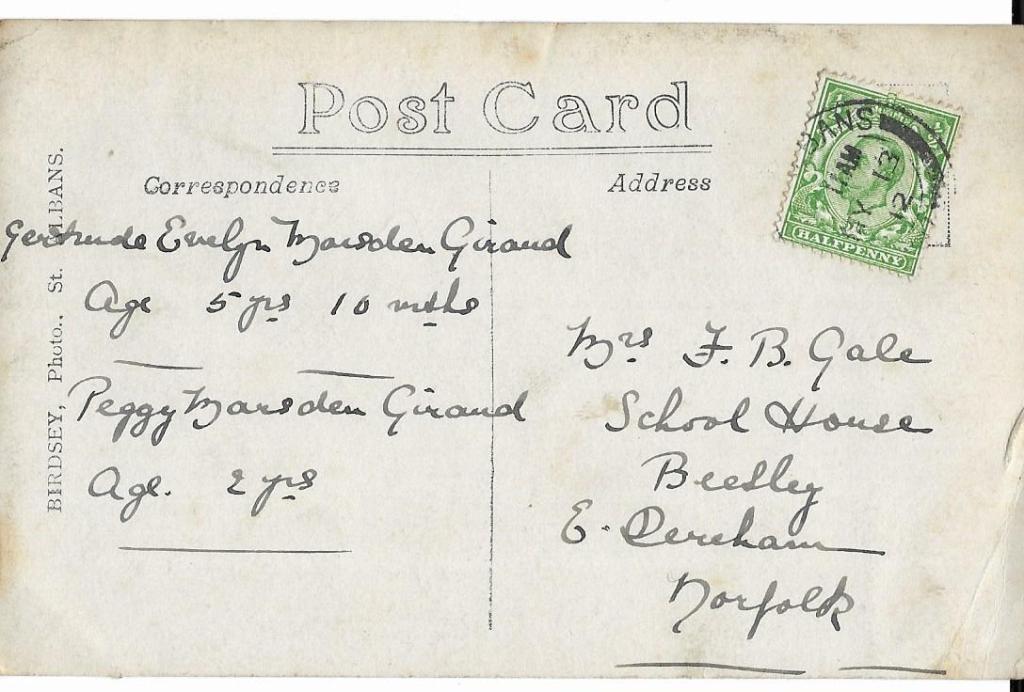 Post Card
Correspondence
Address
BIRDSEY, Photo., St. ALBANS.
Gertrude Evelyn Marsden Giraud
Age 5 yrs 10 mths
Peggy Marsden Giraud
Age. 2 yrs
Mrs F. B. Gale
School House
Beetley
E. Dereham
Norfolk
BANS
11 AM
12 13
HALFPENNY